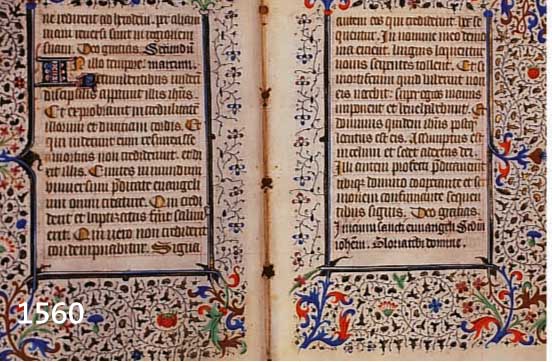 ne redirent ad herodem. per aliam
viam reversi sunt in regionem
suam. Deo gratias. Secundum
In illo tempore. marcum.
recumbentibus undeci
discipulis apparuit illis ihesus.
Et exprobravit incredulitate
illorum et duriciam cordis. Et
qui viderant eum resurrexisse
a mortuis non crediderunt. et dix
it illis. Euntes in mundum
universum predicate evangeli
um omni creature. Qui credi
derit et baptizatus fuerit salvus
erit. Qui vero non crediderit
condempnabitur. Signa
autem eos qui crediderint hec se
quentur. In nomine meo demo
nia eicient. linguis loquentur
novis serpentes tollent. Et si
mortiferum quid biberint non
eis nocebit. super egros manus
imponent et bene habebunt. Et
dominus quidem ihesus postquam
locutus est eis. Assumptus est
in celum et sedet a dextris dei.
Illi autem profecti predicaverunt
ubique domino cooperante et ser
monem confirmante sequen
tibus signis. Deo gratias.
Inicium sancti euvangelii Secundum
iohannem. Gloria tibi domine.
1560